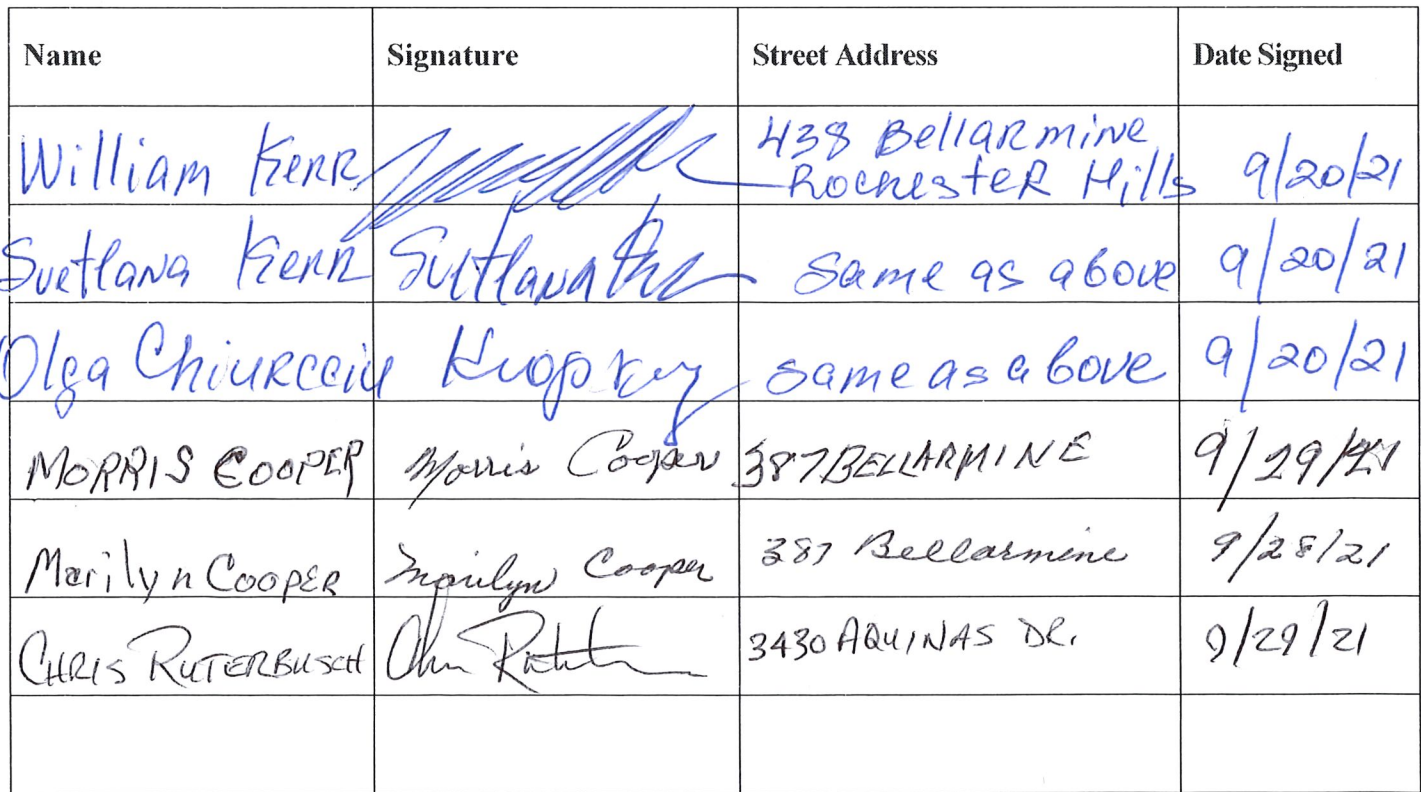 Name Signature Street Address Date Signed
William Kerr 438 Bellarmine
Rochester Hills 9/20/21
Svetlana Kerr Svetlana Kerr same as above 9/20/21
Olga Chiurcciu same as above 9/20/21
MORRIS COOPER Morris Cooper 387 BELLARMINE 9/29/21
Marilyn COOPER Marilyn Cooper 387 Bellarmine 9/28/21
CHRIS RUTERBUSCH 3430 AQUINAS DR. 9/29/21